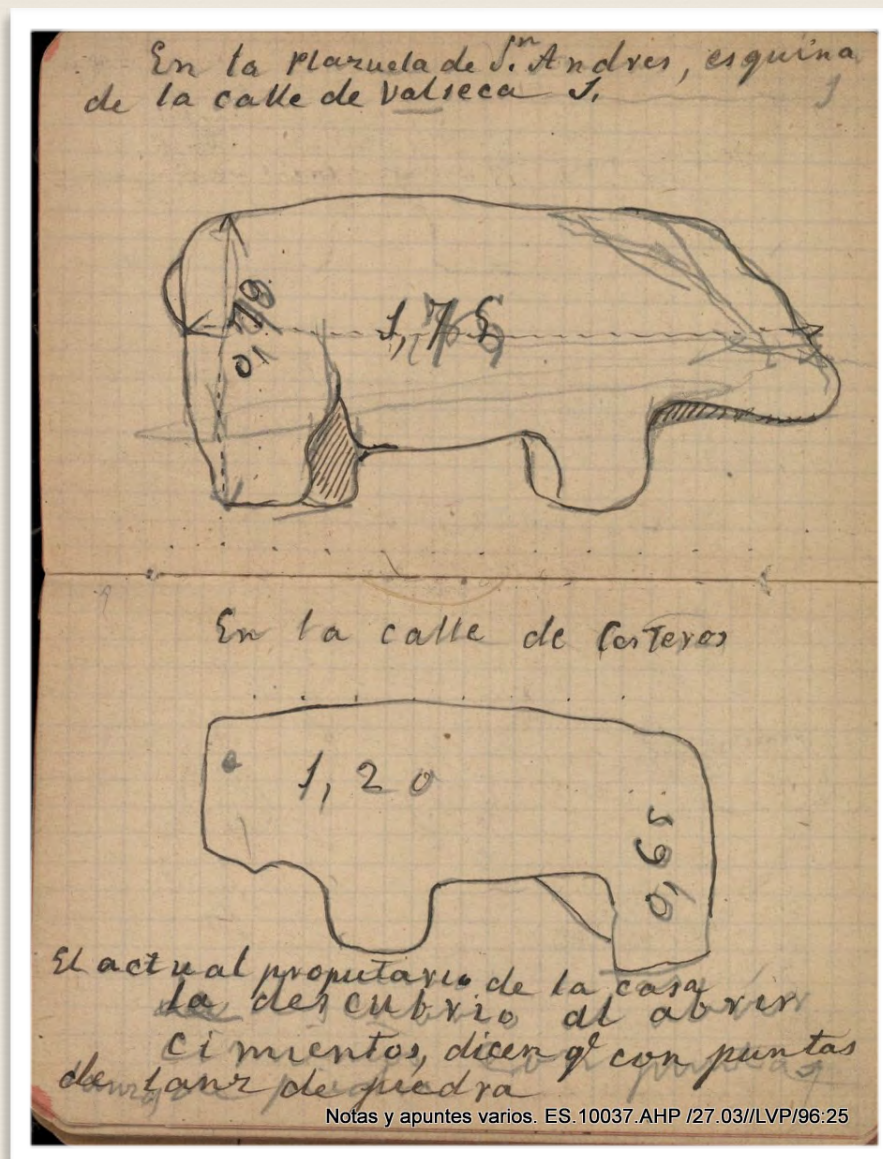 En la Plazuela de Sn. Andres, esquina
de la calle de Valseca 1.
1,75
En la calle de Cesteros
1,20
0,65
El actual propietario de la casa
la descubrio al abrir
cimientos, dicen qe con puntas
de lanz de piedra
Notas y apuntes varios. ES.10037.AHP /27.03//LVP/96:25